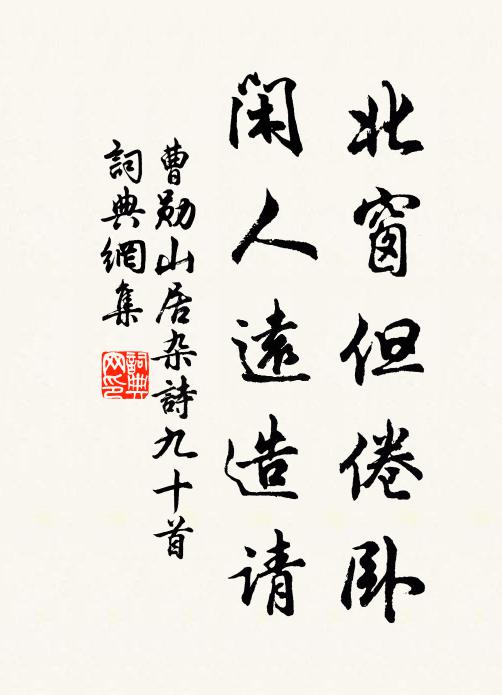 北窗但倦卧
闲人遠造请
曹勋山居杂詩九十首
詞典網集
詞典网印